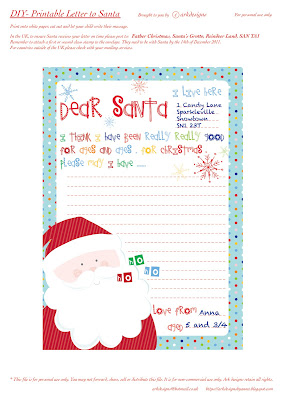 DIY- Printable Letter to Santa Brought to you by @arkdesigns For personal use only.
Print onto white paper, cut out and let your child write their message.
In the UK, to ensure Santa receives your letter in time please post to: Father Christmas, Santa's Grotto, Reindeer Land, SAN TA1
Remember to attach a first or second class stamp to the envelope. They need to be with Santa by the 10th of December 2011.
For countries outside of the UK please check with your mailing services.
I live here
1 Candy Lane
Sparkleville
Snowtown
SN1 23T
Dear Santa
I think I have been really really good
for ages and ages . for christmas ,
please may I have .....
ho
ho
ho
Love from Anna
aged 5 and 3/4
* This file is for personal use only. You may not forward, share, sell or distribute this file. It is for non-commercial use only. Ark designs retain all rights.